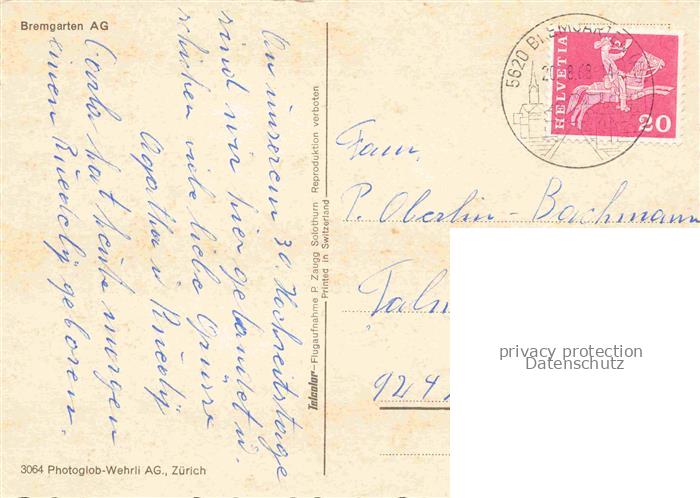 Bremgarten AG
An unserem 30. Hochzeitstage
sind wir hier gelandet u.
schicken viele liebe Grüsse
Agatha u Ruedi
Carla hat heute morgen
einen Ruedeli geboren.
3064 Photoglob-Wehrli AG., Zürich
Telcolor-Flugaufnahme P. Zaugg Solothurn Reproduktion verboten
Printed in Switzerland
5620 BREMGARTEN
HELVETIA
20
Fam.
P. Oberlin-Bachmann
924
privacy protection
Datenschutz